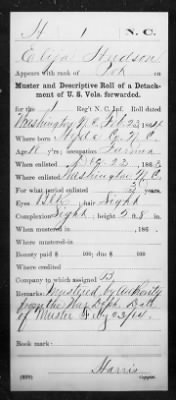 H 1 N.C.
Eliza Hudson
Appears with rank of
Muster and Descriptive Roll of a Detach-
ment of U. S. Vols. forwarded.
for the 1 Reg't N. C. Inf. Roll dated
Washington N.C. Feb. 23, 1864
Where born Hyde Co. N.C.
Age y'rs; occupation Farmer
When enlisted 23, 186
Where enlisted Washington N.C.
For what period enlisted 3 years.
Eyes Blk; hair Light
Complexion Light; height 5 ft. 8 in.
When mustered in , 186 .
Where mustered-in
Bounty paid $ 100; due $ 100
Where credited
Company to which assigned B
Remarks: Mustered by authority
from the War Dept. Date
of Muster 23/64.
Book mark:
Harris
Copyist.